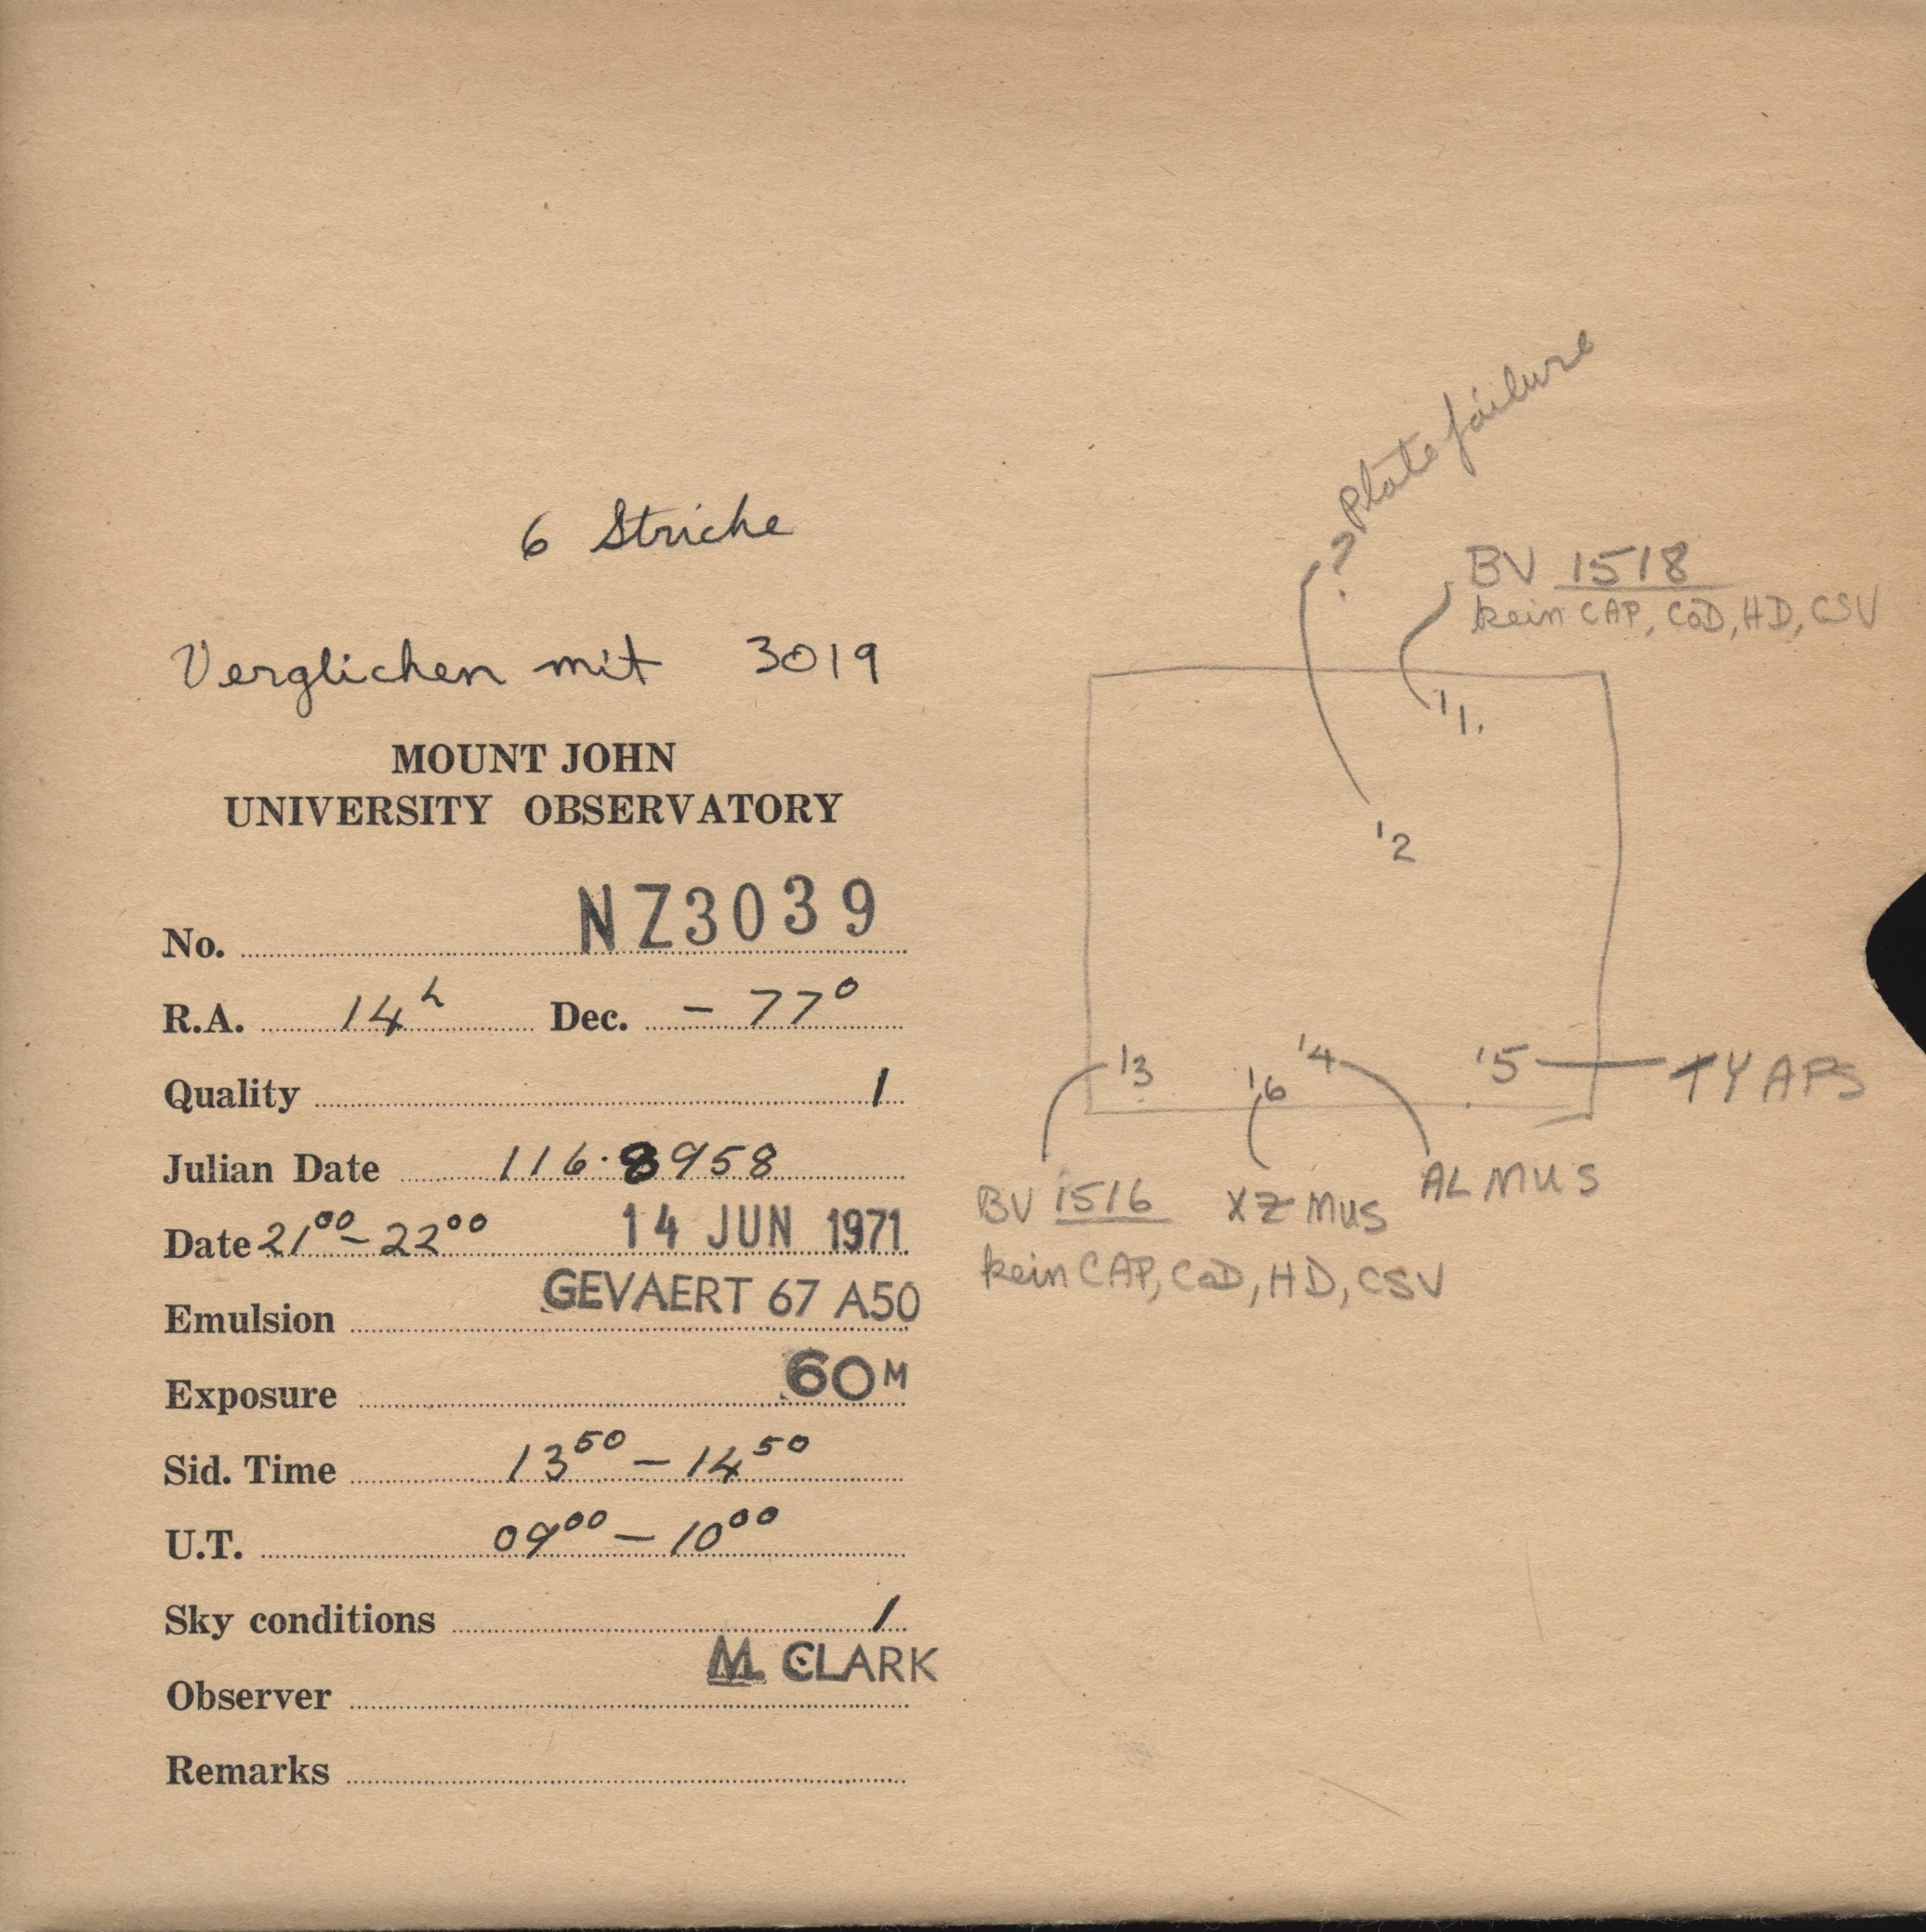 6 Striche
Verglichen mit 3019
MOUNT JOHN
UNIVERSITY OBSERVATORY
No. NZ3039
R.A. 14ʰ Dec. - 77°
Quality 1
Julian Date 116.8958
Date 21⁰⁰ - 22⁰⁰ 14 JUN 1971
Emulsion GEVAERT 67 A50
Exposure 60 M
Sid. Time 13⁵⁰ - 14⁵⁰
U.T. 09⁰⁰ - 10⁰⁰
Sky conditions 1
Observer M. CLARK
Remarks
? Plate failure
BV 1518
kein CAP, CoD, HD, CSV
'1.
'2
'3
'6
'4
'5
TY APS
BV 1516
kein CAP, CoD, HD, CSV
XZ MUS
AL MUS